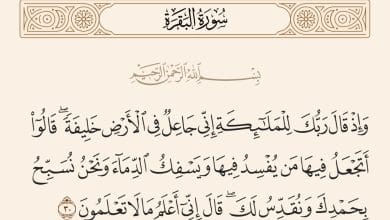 سُورَةُ البَقَرَةِ
بِسْمِ ٱللَّهِ ٱلرَّحْمَٰنِ ٱلرَّحِيمِ
وَإِذْ قَالَ رَبُّكَ لِلْمَلَٰٓئِكَةِ إِنِّي جَاعِلٌ فِي ٱلْأَرْضِ خَلِيفَةً ۖ قَالُوٓا۟
أَتَجْعَلُ فِيهَا مَن يُفْسِدُ فِيهَا وَيَسْفِكُ ٱلدِّمَآءَ وَنَحْنُ نُسَبِّحُ
بِحَمْدِكَ وَنُقَدِّسُ لَكَ ۖ قَالَ إِنِّيٓ أَعْلَمُ مَا لَا تَعْلَمُونَ ٣٠